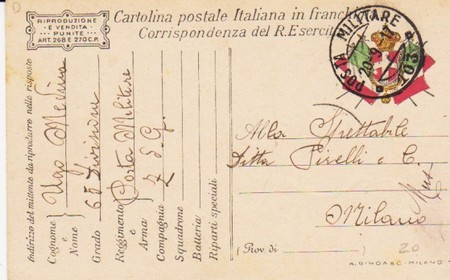 RIPRODUZIONE
E VENDITA
PUNITE
ART. 268 E 270 C.P.
Cartolina postale Italiana in franch
Corrispondenza del R. Esercit
POSTA MILITARE
20-9-17
Indirizzo del mittente da riprodurre nelle risposte
Cognome e Nome Ugo
Grado 65 Divisione
Reggimento e Arma Posta Militare
Compagnia Z. d. G.
Squadrone
Batteria
Riparti speciali
Alla Spettabile
Ditta Piselli e C.
Milano
(Prov. di )
20
MILANO